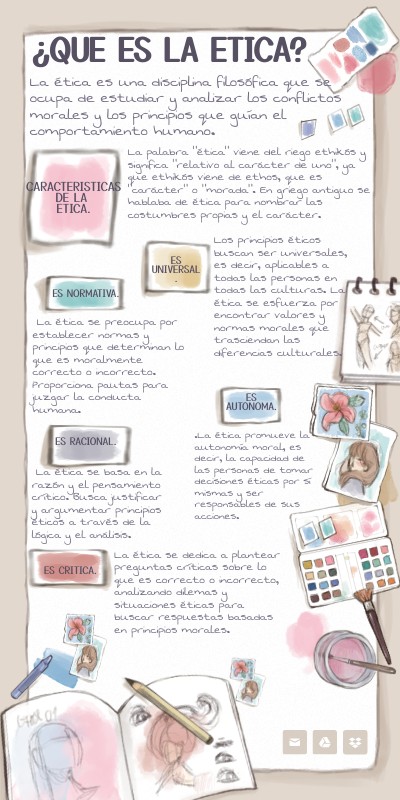 ¿QUE ES LA ETICA?
La ética es una disciplina filosófica que se
ocupa de estudiar y analizar los conflictos
morales y los principios que guían el
comportamiento humano.
CARACTERISTICAS
DE LA
ETICA.
La palabra "ética" viene del riego ethikós y
significa "relativo al carácter de uno", ya
que ethikós viene de ethos, que es
"carácter" o "morada". En griego antiguo se
hablaba de ética para nombrar las
costumbres propias y el carácter.
ES
UNIVERSAL
.
Los principios éticos
buscan ser universales,
es decir, aplicables a
todas las personas en
todas las culturas. La
ética se esfuerza por
encontrar valores y
normas morales que
trasciendan las
diferencias culturales.
ES NORMATIVA.
La ética se preocupa por
establecer normas y
principios que determinan lo
que es moralmente
correcto o incorrecto.
Proporciona pautas para
juzgar la conducta
humana.
ES
AUTONOMA.
.La ética promueve la
autonomía moral, es
decir, la capacidad de
las personas de tomar
decisiones éticas por sí
mismas y ser
responsables de sus
acciones.
ES RACIONAL.
La ética se basa en la
razón y el pensamiento
crítico. Busca justificar
y argumentar principios
éticos a través de la
lógica y el análisis.
ES CRITICA.
La ética se dedica a plantear
preguntas críticas sobre lo
que es correcto o incorrecto,
analizando dilemas y
situaciones éticas para
buscar respuestas basadas
en principios morales.